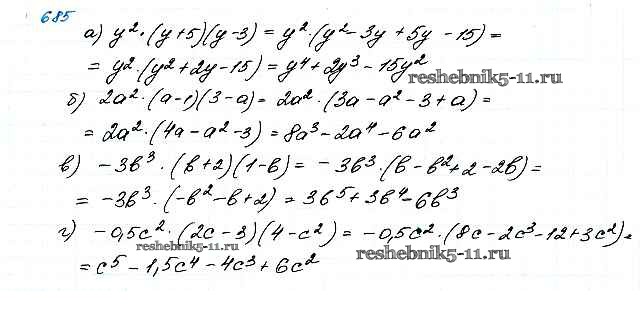 685
а) y²·(y+5)(y-3) = y²·(y² - 3y + 5y - 15) =
= y²·(y²+2y-15) = y⁴+2y³-15y²
reshebnik5-11.ru
б) 2a²·(a-1)(3-a) = 2a²·(3a-a²-3+a) =
= 2a²·(4a-a²-3) = 8a³-2a⁴-6a²
в) -3b³·(b+2)(1-b) = -3b³·(b-b²+2-2b) =
= -3b³·(-b²-b+2) = 3b⁵+3b⁴-6b³
г) -0,5c²·(2c-3)(4-c²) = -0,5c²·(8c-2c³-12+3c²) =
reshebnik5-11.ru reshebnik5-11.ru
= c⁵-1,5c⁴-4c³+6c²